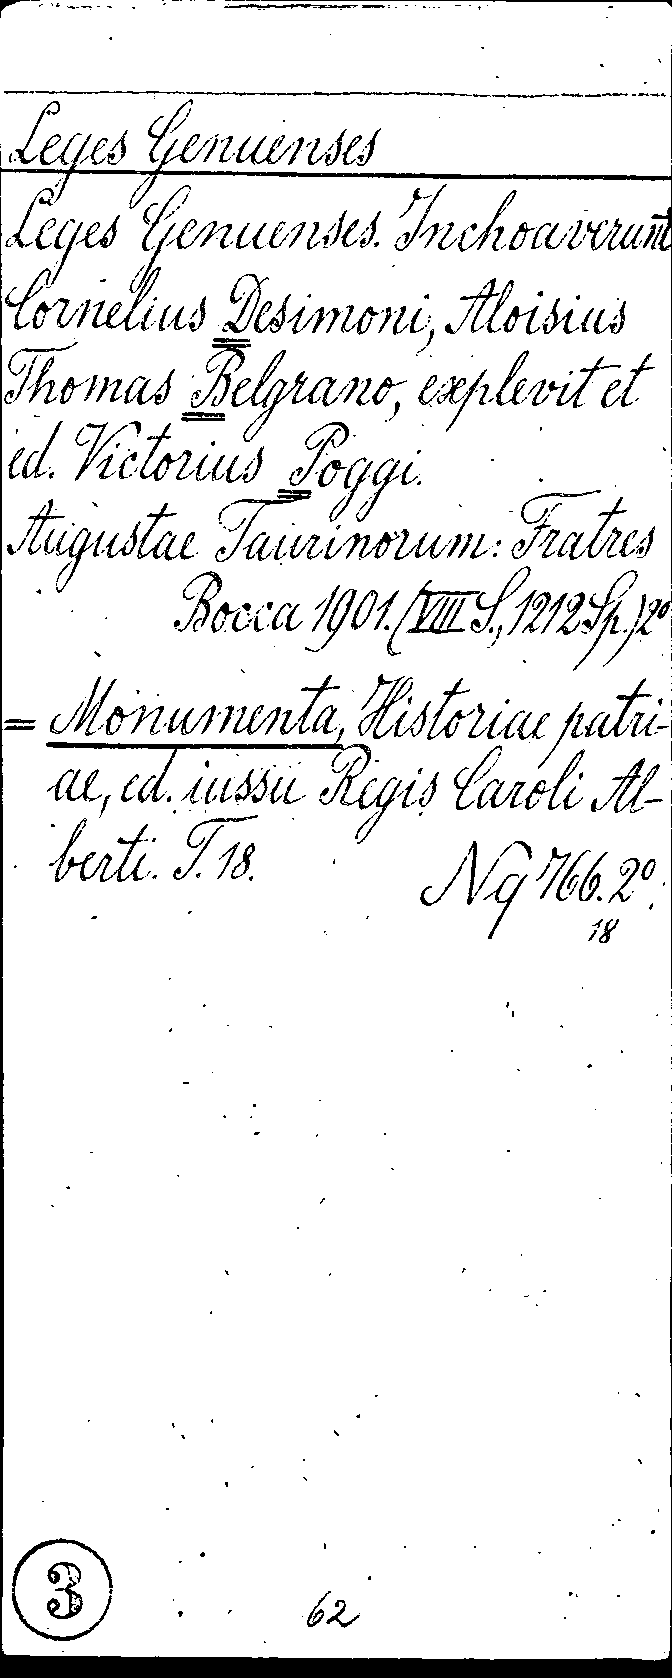 Leges Genuenses
Leges Genuenses. Inchoaverunt
Cornelius Desimoni, Aloisius
Thomas Belgrano, explevit et
ed. Victorius Poggi.
Augustae Taurinorum: Fratres
Bocca 1901. (VIII S., 1212 Sp.) 2°
= Monumenta, Historiae patri-
ae, ed. iussu Regis Caroli Al-
berti. T. 18.
Nq 766. 2°.
18
3
62